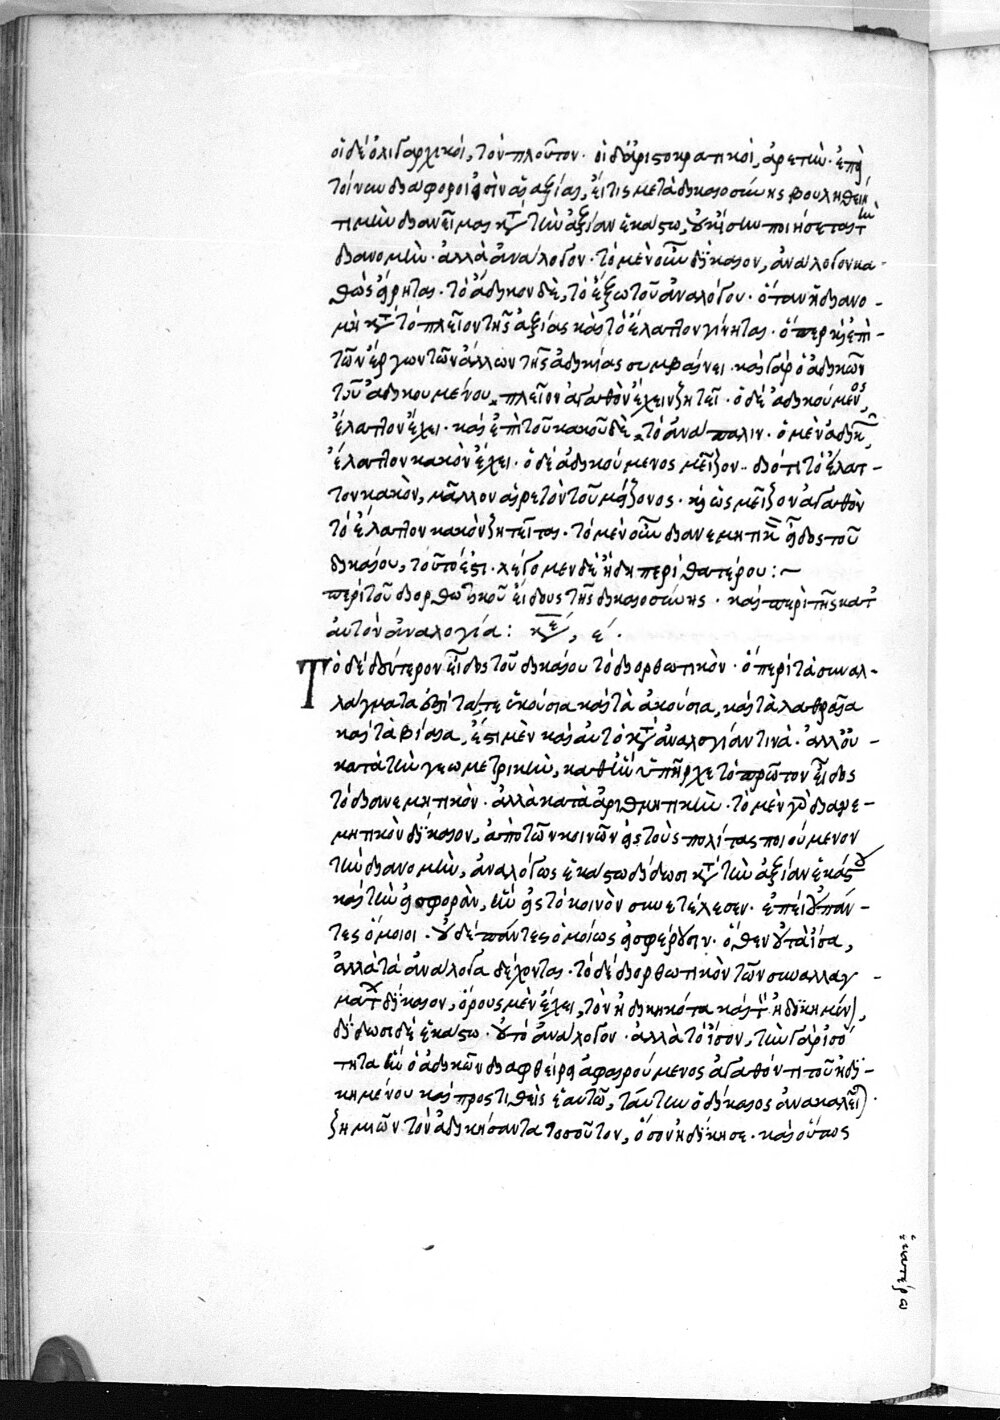 οἱ δὲ ὀλιγαρχικοί, τὸν πλοῦτον· οἱ δ' ἀριστοκρατικοὶ, ἀρετήν· ἐπεὶ
τοίνυν διάφοροι εἰσὶν αἱ ἀξίαι, εἴ τις μετὰ δικαιοσύνης βουληθείη
τιμὴν διανεῖμαι κατὰ τὴν ἀξίαν ἑκάστω, οὐκ ἴσην ποιήσεται τὴν
διανομήν· ἀλλὰ ἀνάλογον· τὸ μὲν οὖν δίκαιον, ἀνάλογον κα-
θὼς εἴρηται· τὸ ἄδικον δὲ, τὸ ἔξω τοῦ ἀναλόγου· ὅταν ἡ διανο-
μὴ κατὰ τὸ πλεῖον τῆς ἀξίας καὶ τὸ ἔλαττον γίνηται· ὅπερ καὶ ἐπὶ
τῶν ἔργων τῶν ἄλλων τῆς ἀδικίας συμβαίνει· καὶ γὰρ ὁ ἀδικῶν
τοῦ ἀδικουμένου, πλεῖον ἀγαθὸν ἔχειν ζητεῖ· ὁ δὲ ἀδικούμενος,
ἔλαττον ἔχει· καὶ ἐπὶ τοῦ κακοῦ δὲ, τὸ ἀνάπαλιν· ὁ μὲν ἀδικῶν,
ἔλαττον κακὸν ἔχει· ὁ δὲ ἀδικούμενος μεῖζον· διότι τὸ ἔλατ-
τον κακὸν, μᾶλλον αἱρετὸν τοῦ μείζονος· καὶ ὡς μεῖζον ἀγαθὸν
τὸ ἔλαττον κακὸν ζητεῖται· τὸ μὲν οὖν διανεμητικὸν εἶδος τοῦ
δικαίου, τοῦτό ἐστι· λέγομεν δὲ ἤδη περὶ θατέρου:~
περὶ τοῦ διορθωτικοῦ εἴδους τῆς δικαιοσύνης· καὶ περὶ τῆς κατ'
αὐτὸν ἀναλογία: κε, ε´.
Τὸ δὲ δεύτερον εἶδος τοῦ δικαίου τὸ διορθωτικὸν· ὃ περὶ τὰ συναλ-
λάγματα ἐστί τά τε ἑκούσια καὶ τὰ ἀκούσια, καὶ τὰ λαθραῖα
καὶ τὰ βίαια, ἔστι μὲν καὶ αὐτὸ κατὰ ἀναλογίαν τινὰ· ἀλλ' οὐ
κατὰ τὴν γεωμετρικὴν, καθ' ἣν ὑπῆρχε τὸ πρῶτον εἶδος
τὸ διανεμητικὸν· ἀλλὰ κατὰ ἀριθμητικὴν· τὸ μὲν γὰρ διανε-
μητικὸν δίκαιον, ἀπὸ τῶν κοινῶν εἰς τοὺς πολίτας ποιούμενον
τὴν διανομὴν, ἀναλόγως ἑκάστω δίδωσι κατὰ τὴν ἀξίαν ἑκάστου
καὶ τὴν εἰσφορὰν, ἣν εἰς τὸ κοινὸν συνετέλεσεν· ἐπεὶ οὐ πάν-
τες ὅμοιοι· οὐδὲ πάντες ὁμοίως εἰσφέρουσιν· ὅθεν οὐ τὰ ἴσα,
ἀλλὰ τὰ ἀνάλογα δέχονται· τὸ δὲ διορθωτικὸν τῶν συναλλαγ-
μάτων δίκαιον, ὅρους μὲν ἔχει, τὸν ἠδικηκότα καὶ τὸν ἠδικημένον,
δίδωσι δὲ ἑκάστω· οὐ τὸ ἀνάλογον· ἀλλὰ τὸ ἴσον, τὴν γὰρ ἰσό
τητα ἣν ὁ ἀδικῶν διαφθείρει ἀφαιρούμενος ἀγαθόν τι τοῦ ἠδι-
κημένου καὶ προστιθεὶς ἑαυτῶ, ταύτην ὁ δίκαιος ἀνακαλεῖται·
ζημιῶν τὸν ἀδικήσαντα τοσοῦτον, ὅσον ἠδίκησε· καὶ οὕτως
ἑκατέρω